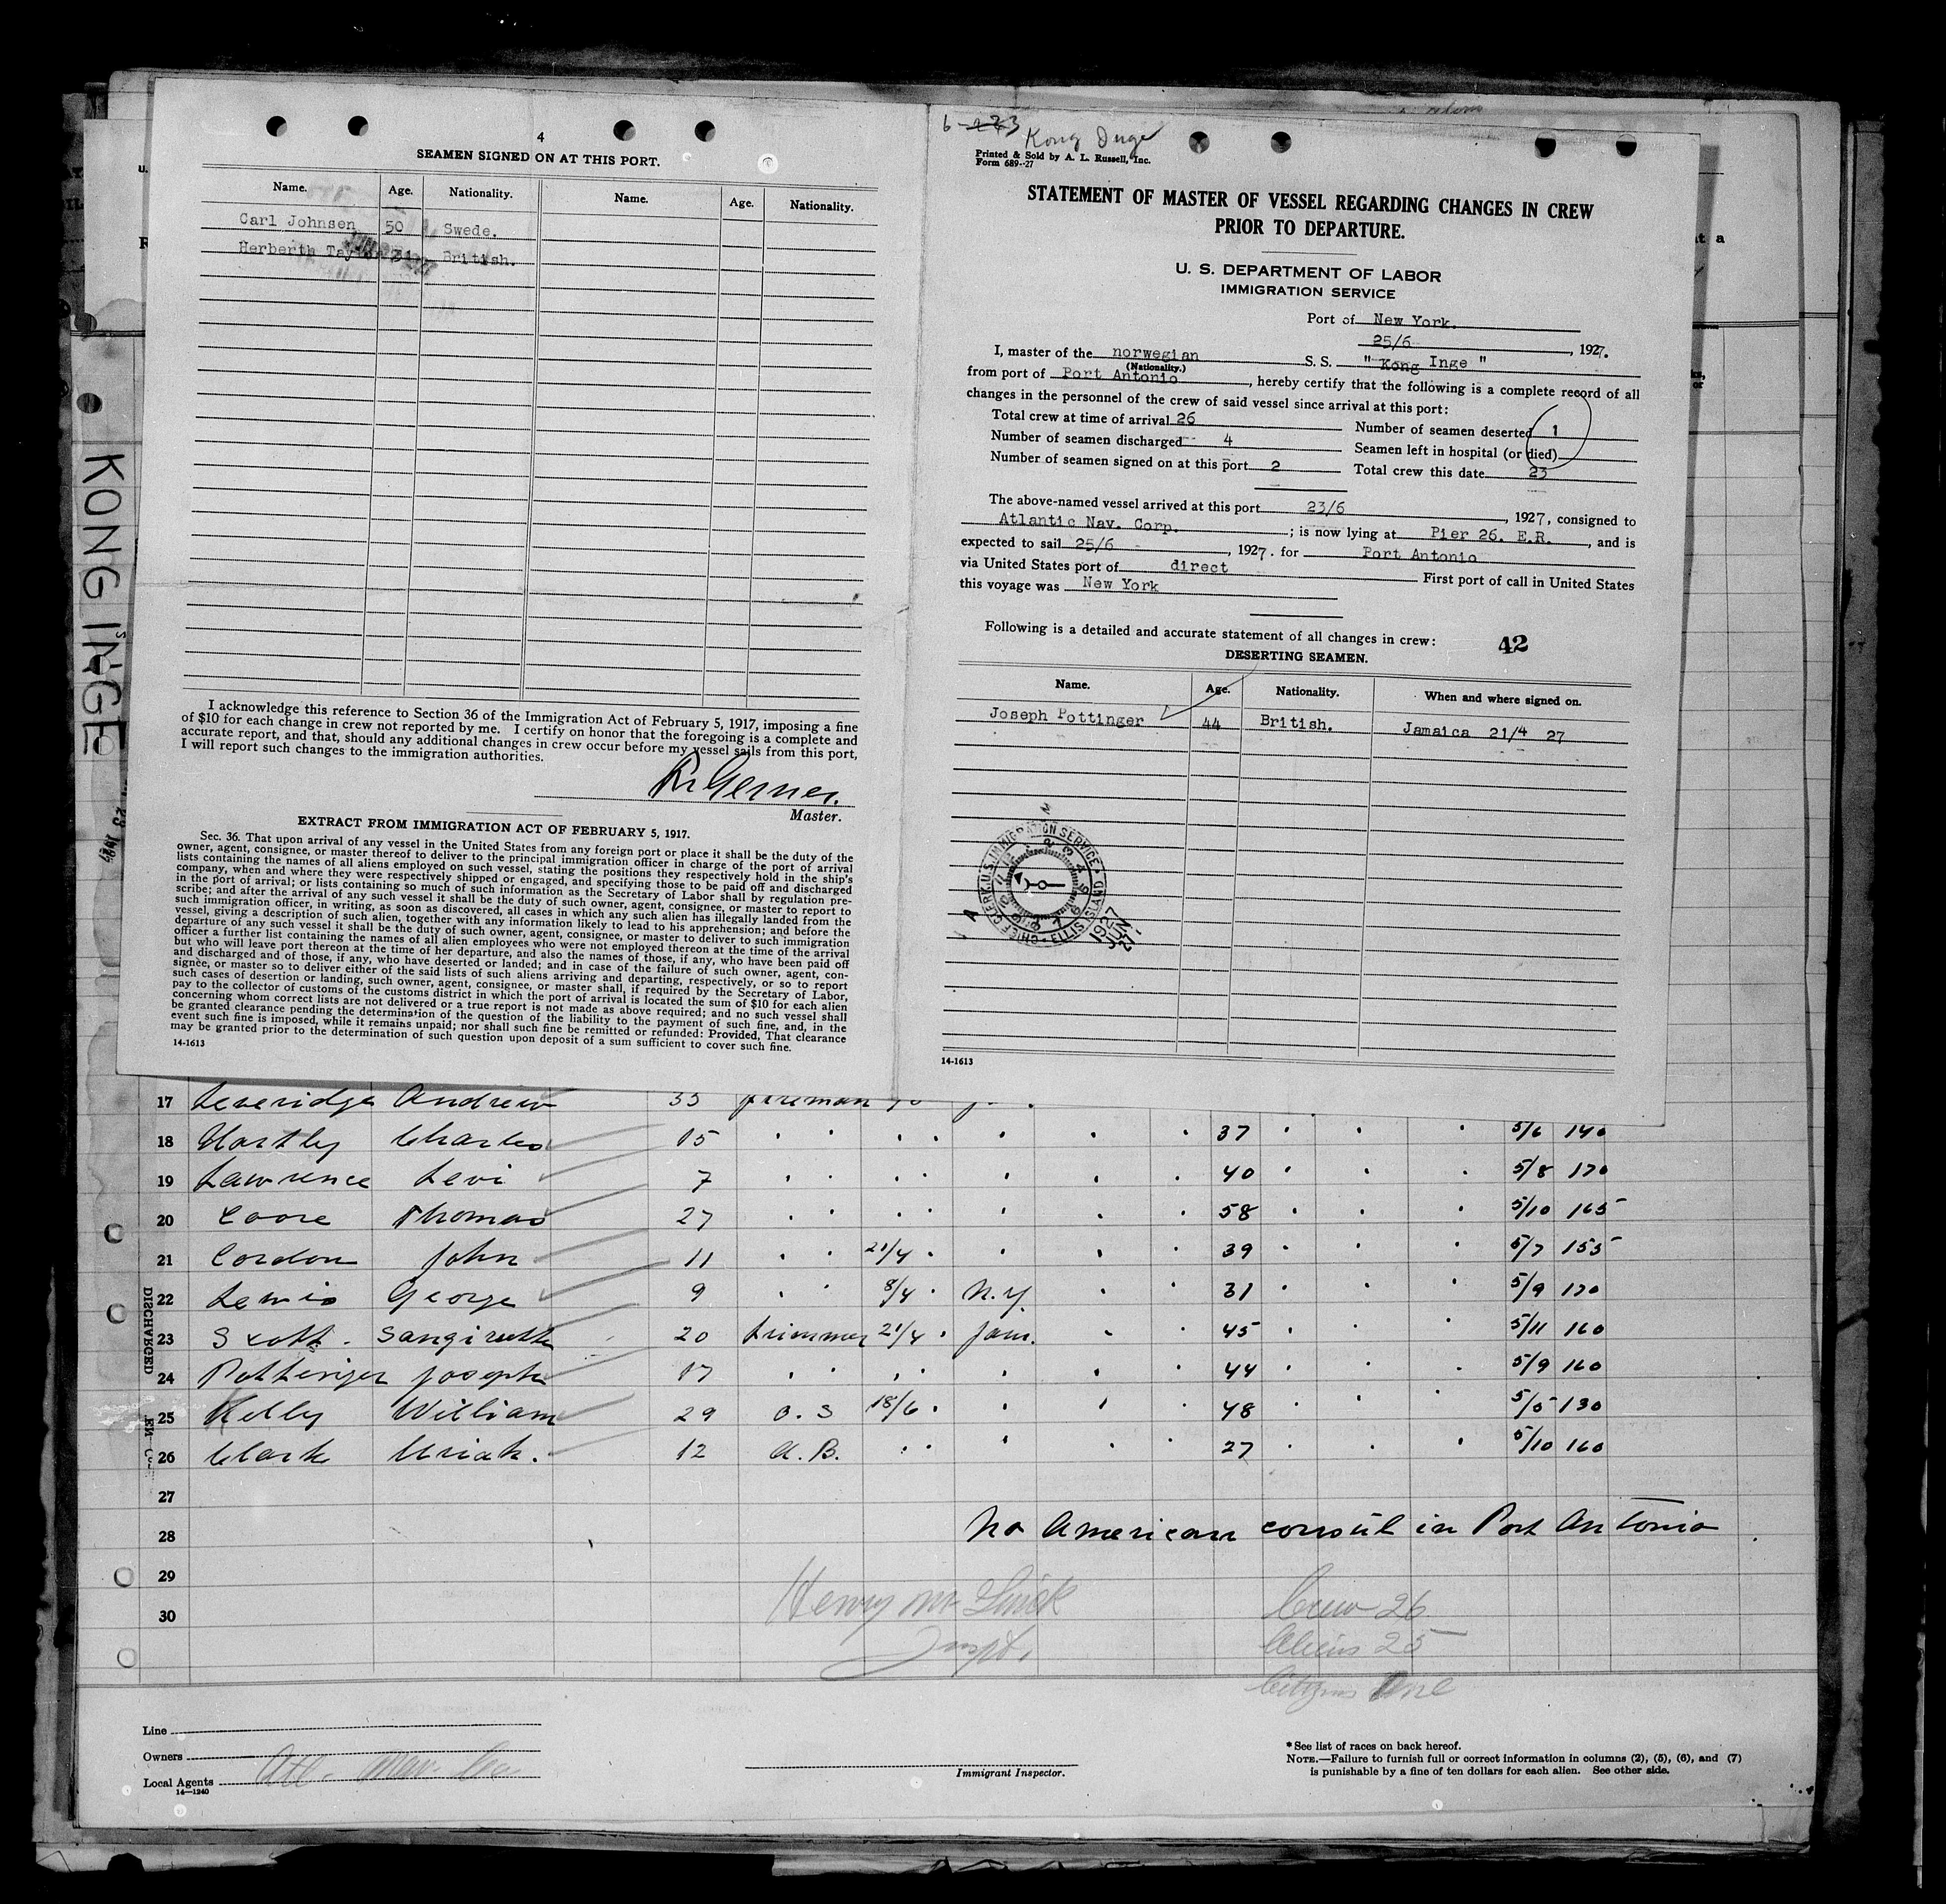 4
SEAMEN SIGNED ON AT THIS PORT.
Name. Age. Nationality. Name. Age. Nationality.
Carl Johnsen 50 Swede.
Herberth British.
I acknowledge this reference to Section 36 of the Immigration Act of February 5, 1917, imposing a fine
of $10 for each change in crew not reported by me. I certify on honor that the foregoing is a complete and
accurate report, and that, should any additional changes in crew occur before my vessel sails from this port,
I will report such changes to the immigration authorities.
Master.
EXTRACT FROM IMMIGRATION ACT OF FEBRUARY 5, 1917.
Sec. 36. That upon arrival of any vessel in the United States from any foreign port or place it shall be the duty of the
owner, agent, consignee, or master thereof to deliver to the principal immigration officer in charge of the port of arrival
lists containing the names of all aliens employed on such vessel, stating the positions they respectively hold in the ship's
company, when and where they were respectively shipped or engaged, and specifying those to be paid off and discharged
in the port of arrival; or lists containing so much of such information as the Secretary of Labor shall by regulation pre-
scribe; and after the arrival of any such vessel it shall be the duty of such owner, agent, consignee, or master to report to
such immigration officer, in writing, as soon as discovered, all cases in which any such alien has illegally landed from the
vessel, giving a description of such alien, together with any information likely to lead to his apprehension; and before the
departure of any such vessel it shall be the duty of such owner, agent, consignee, or master to deliver to such immigration
officer a further list containing the names of all alien employees who were not employed thereon at the time of the arrival
but who will leave port thereon at the time of her departure, and also the names of those, if any, who have been paid off
and discharged and of those, if any, who have deserted or landed; and in case of the failure of such owner, agent, con-
signee, or master so to deliver either of the said lists of such aliens arriving and departing, respectively, or so to report
such cases of desertion or landing, such owner, agent, consignee, or master shall, if required by the Secretary of Labor,
pay to the collector of customs of the customs district in which the port of arrival is located the sum of $10 for each alien
concerning whom correct lists are not delivered or a true report is not made as above required; and no such vessel shall
be granted clearance pending the determination of the question of the liability to the payment of such fine, and, in the
event such fine is imposed, while it remains unpaid; nor shall such fine be remitted or refunded: Provided, That clearance
may be granted prior to the determination of such question upon deposit of a sum sufficient to cover such fine.
14-1613
Kong Inge
Printed & Sold by A. L. Russell, Inc.
Form 689--27
STATEMENT OF MASTER OF VESSEL REGARDING CHANGES IN CREW
PRIOR TO DEPARTURE.
U. S. DEPARTMENT OF LABOR
IMMIGRATION SERVICE
Port of New York.
25/6, 1927.
I, master of the norwegian S. S. "Kong Inge"
(Nationality.)
from port of Port Antonio, hereby certify that the following is a complete record of all
changes in the personnel of the crew of said vessel since arrival at this port:
Total crew at time of arrival 26 Number of seamen deserted 1
Number of seamen discharged 4 Seamen left in hospital (or died)
Number of seamen signed on at this port 2 Total crew this date 23
The above-named vessel arrived at this port 23/6, 1927, consigned to
Atlantic Nav. Corp.; is now lying at Pier 26. E.R., and is
expected to sail 25/6, 1927. for Port Antonio
via United States port of direct First port of call in United States
this voyage was New York
Following is a detailed and accurate statement of all changes in crew: 42
DESERTING SEAMEN.
Name. Age. Nationality. When and where signed on.
Joseph Pottinger 44 British. Jamaica 21/4 27
CHIEF CLERK, U.S. IMMIGRATION SERVICE ELLIS ISLAND
1927 JUN 27
14-1613
KONG INGE
DISCHARGED
17 Leveridge Andrew 35 fireman
18 Hartley Charles 15 37 5/6 140
19 Lawrence Levi 7 40 5/8 170
20 Coore Thomas 27 58 5/10 165
21 Cordon John 11 21/4 39 5/7 155
22 Lewis George 9 8/4 N.Y. 31 5/9 170
23 Scott 20 trimmer 21/4 Jam. 45 5/11 160
24 Pottinger Joseph 17 44 5/9 160
25 Kelly William 29 O.S 18/6 48 5/5 130
26 Clark Uriah. 12 A.B. 27 5/10 160
27
28 No American consul in Port Antonio
29
30
Crew 26
Aliens 25
Citizens One
Line
Owners
Local Agents
14-1240
Immigrant Inspector.
*See list of races on back hereof.
NOTE.—Failure to furnish full or correct information in columns (2), (5), (6), and (7)
is punishable by a fine of ten dollars for each alien. See other side.